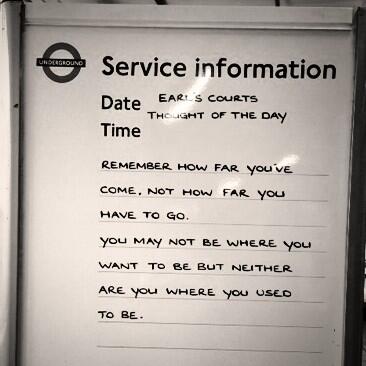 UNDERGROUND
Service information
Date EARL'S COURTS
THOUGHT OF THE DAY
Time
REMEMBER HOW FAR YOU'VE
COME, NOT HOW FAR YOU
HAVE TO GO.
YOU MAY NOT BE WHERE YOU
WANT TO BE BUT NEITHER
ARE YOU WHERE YOU USED
TO BE.